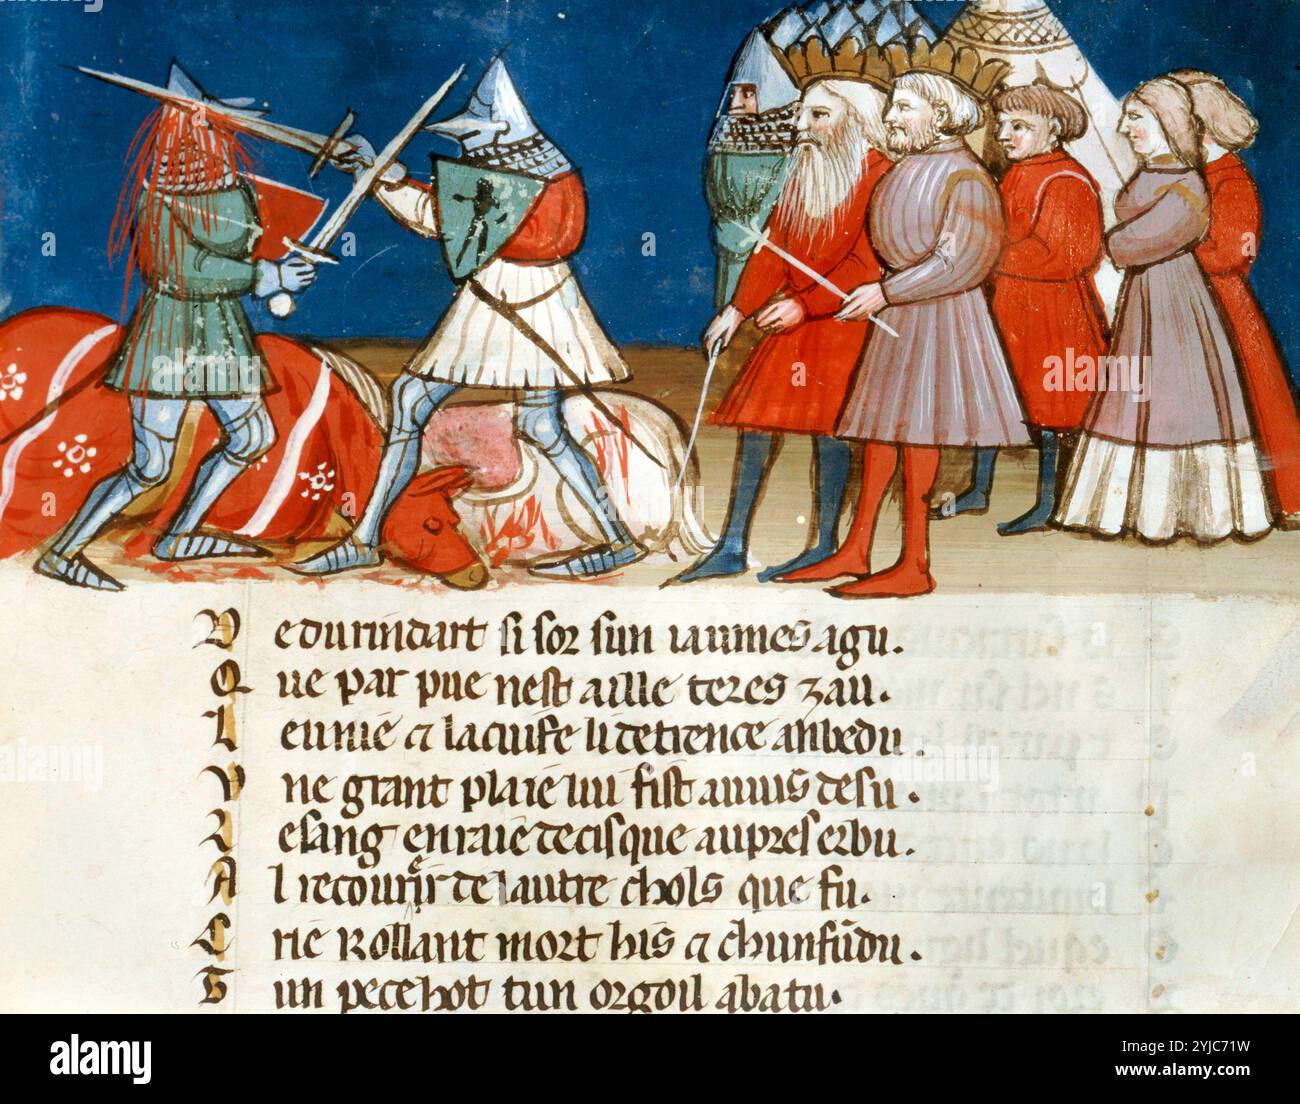 D edurindart si sor sun iaumes agu.
Q ue par pue nest aille teres zau.
L eunie & lacuife li detrence anbedu.
V ne grant plaie lui fist auuis desu.
L esang enraie decisque aupres erbu.
A l recourir de lautre chols que fu.
C rie Rollant mort his & chunfundu.
T un pecehot tun orgoil abatu.
a
a
a
a
a
a
alamy
alamy
alamy
alamy
Image ID: 2YJC71W
www.alamy.com